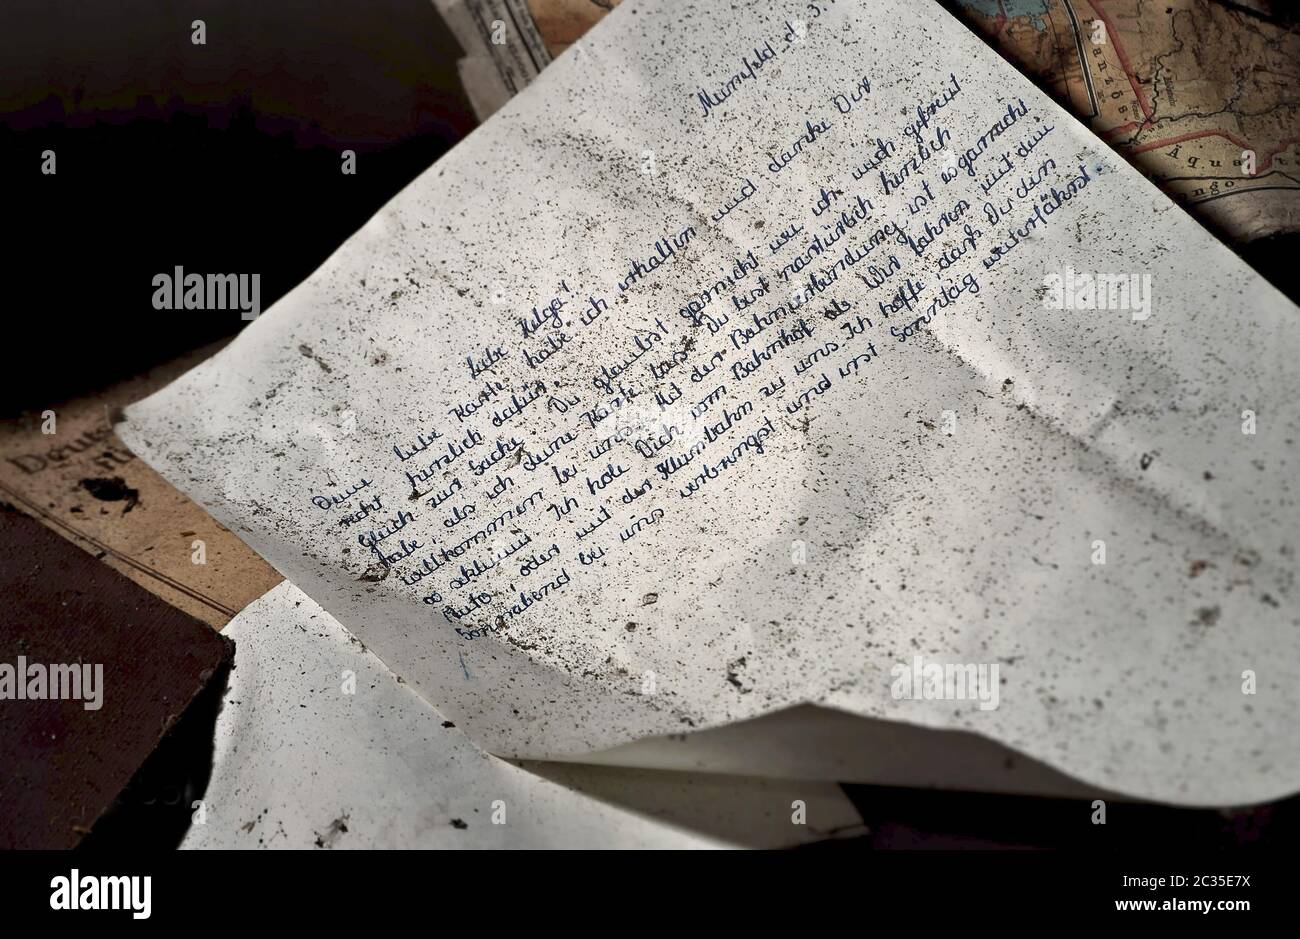 Mumfeld d. 3.
Liebe Helga!
Deine liebe Karte habe ich erhalten und danke Dir
recht herzlich dafür.
Gleich zur Sache. Du glaubst garnicht wie ich mich gefreut
habe, als ich deine Karte las. Du bist natürlich herzlich
willkommen bei uns. Mit der Bahnverbindung ist es garnicht
so schlimm. Ich hole Dich vom Bahnhof ab. Wir fahren mit dem
Auto oder mit der Kleinbahn zu uns. Ich hoffe dass Du den
Sonnabend bei uns verbringst und erst Sonntag weiterfährst.
Franzö
Äqua
ngo
Deut
alamy
Image ID: 2C35E7X
www.alamy.com